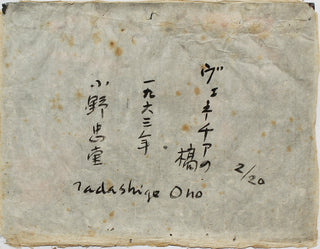 ヴェネチアの
橋
2/20
一九六三年
小野忠重
Tadashige Ono